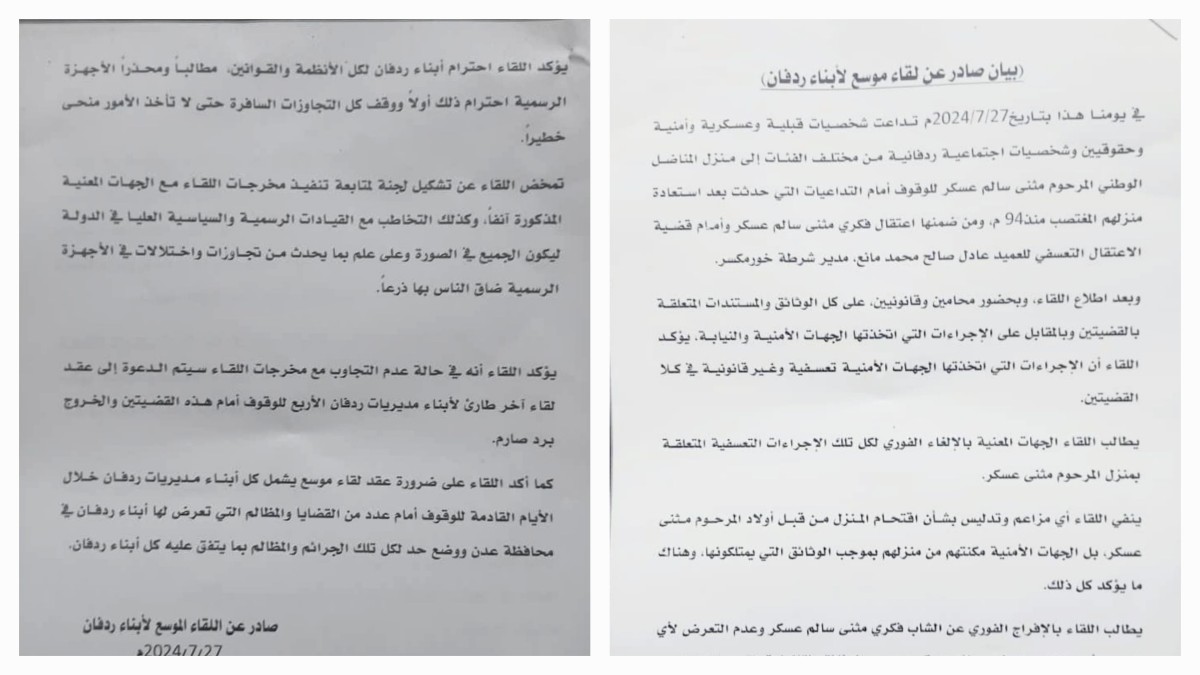 (بيان صادر عن لقاء موسع لأبناء ردفان)
في يومنا هذا بتاريخ2024/7/27م تداعت شخصيات قبلية وعسكرية وأمنية
وحقوقيين وشخصيات اجتماعية ردفانية من مختلف الفئات إلى منزل المناضل
الوطني المرحوم مثنى سالم عسكر للوقوف أمام التداعيات التي حدثت بعد استعادة
منزلهم المغتصب منذ94 م، ومن ضمنها اعتقال فكري مثنى سالم عسكر وأمام قضية
الاعتقال التعسفي للعميد عادل صالح محمد مانع، مدير شرطة خورمكسر.
وبعد اطلاع اللقاء، وبحضور محامين وقانونيين، على كل الوثائق والمستندات المتعلقة
بالقضيتين وبالمقابل على الإجراءات التي اتخذتها الجهات الأمنية والنيابة، يؤكد
اللقاء أن الإجراءات التي اتخذتها الجهات الأمنية تعسفية وغير قانونية في كلا
القضيتين.
يطالب اللقاء الجهات المعنية بالإلغاء الفوري لكل تلك الإجراءات التعسفية المتعلقة
بمنزل المرحوم مثنى عسكر.
ينفي اللقاء أي مزاعم وتدليس بشأن اقتحام المنزل من قبل أولاد المرحوم مثنى
عسكر، بل الجهات الأمنية مكنتهم من منزلهم بموجب الوثائق التي يمتلكونها، وهناك
ما يؤكد كل ذلك.
يطالب اللقاء بالإفراج الفوري عن الشاب فكري مثنى سالم عسكر وعدم التعرض لأي
يؤكد اللقاء احترام أبناء ردفان لكل الأنظمة والقوانين، مطالباً ومحذراً الأجهزة
الرسمية احترام ذلك أولاً ووقف كل التجاوزات السافرة حتى لا تأخذ الأمور منحى
خطيراً.
تمخض اللقاء عن تشكيل لجنة لمتابعة تنفيذ مخرجات اللقاء مع الجهات المعنية
المذكورة آنفاً، وكذلك التخاطب مع القيادات الرسمية والسياسية العليا في الدولة
ليكون الجميع في الصورة وعلى علم بما يحدث من تجاوزات واختلالات في الأجهزة
الرسمية ضاق الناس بها ذرعاً.
يؤكد اللقاء أنه في حالة عدم التجاوب مع مخرجات اللقاء سيتم الدعوة إلى عقد
لقاء آخر طارئ لأبناء مديريات ردفان الأربع للوقوف أمام هذه القضيتين والخروج
برد صارم.
كما أكد اللقاء على ضرورة عقد لقاء موسع يشمل كل أبناء مديريات ردفان خلال
الأيام القادمة للوقوف أمام عدد من القضايا والمظالم التي تعرض لها أبناء ردفان في
محافظة عدن ووضع حد لكل تلك الجرائم والمظالم بما يتفق عليه كل أبناء ردفان.
صادر عن اللقاء الموسع لأبناء ردفان
2024/7/27م